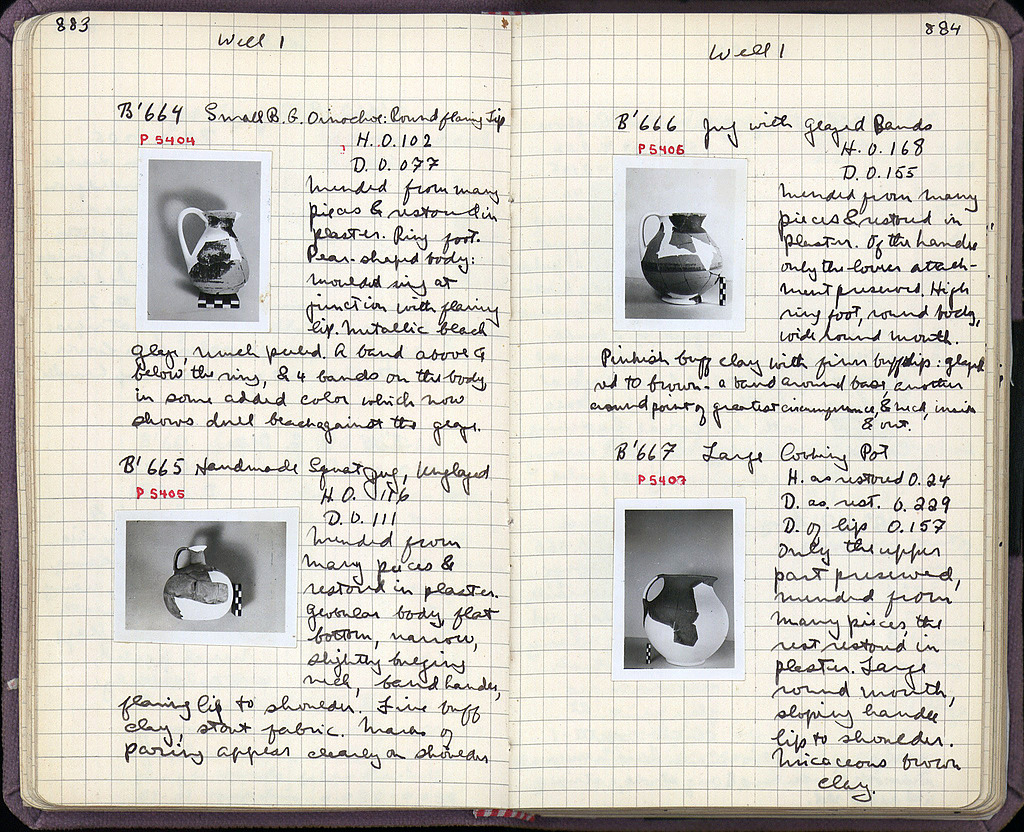 883
Well 1
B'664 Small B.G. Oinochoe: Round flaring lip
P 5404
H. 0.102
D. 0.077
Mended from many
pieces & restored in
plaster. Ring foot.
Pear-shaped body:
moulded ring at
junction with flaring
lip. Metallic black
glaze, much peeled. A band above &
below the ring, & 4 bands on the body
in some added color which now
shows dull black against the glaze.
B'665 Handmade Squat Jug, Unglazed
P 5405
H. 0.116
D. 0.111
Mended from
many pieces &
restored in plaster.
Globular body, flat
bottom, narrow,
slightly bulging
neck, band handle,
flaring lip to shoulder. Fine buff
clay, stout fabric. Marks of
paring appear clearly on shoulder
884
Well 1
B'666 Jug with Glazed Bands
P 5406
H. 0.168
D. 0.155
Mended from many
pieces & restored in
plaster. Of the handle
only the lower attach-
ment preserved. High
ring foot, round body,
wide round mouth.
Pinkish buff clay with firm buff slip: glazed
red to brown - a band around base, another
around point of greatest circumference, & neck, inside
& out.
B'667 Large Cooking Pot
P 5407
H. as restored 0.24
D. as rest. 0.229
D. of lip 0.157
Only the upper
part preserved,
mended from
many pieces, the
rest restored in
plaster. Large
round mouth,
sloping handle
lip to shoulder.
Micaceous brown
clay.